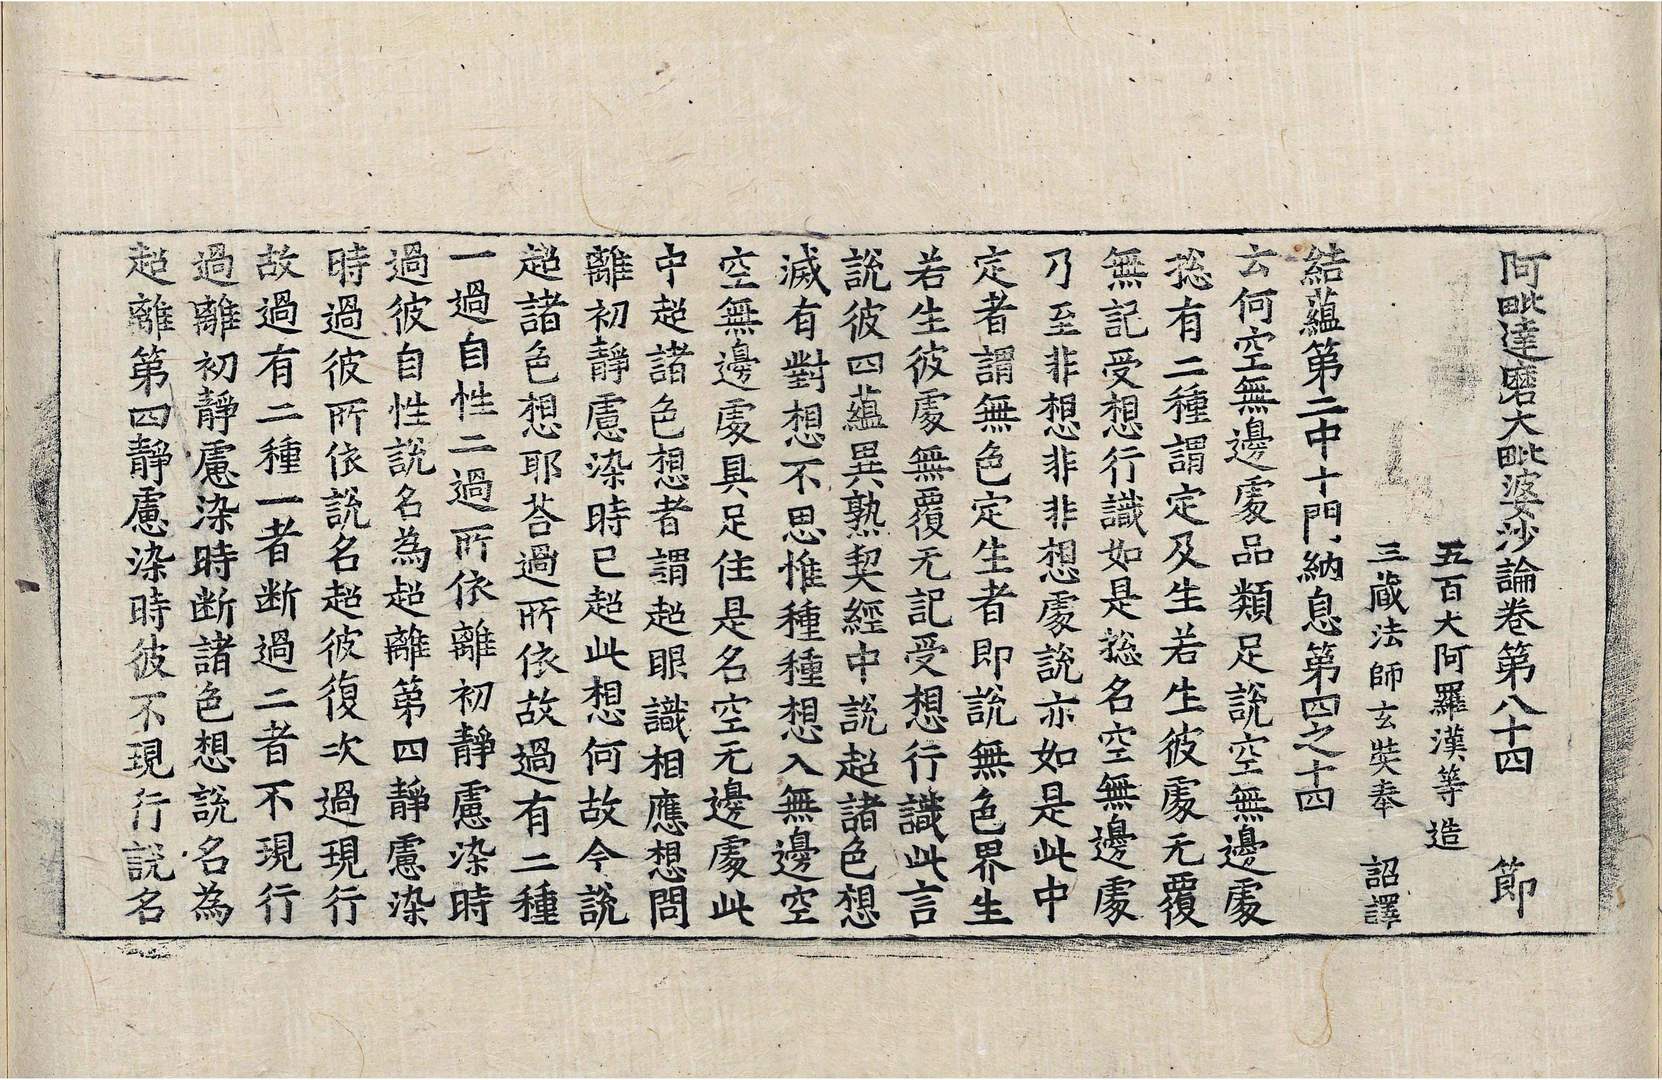 阿毗達磨大毗婆沙論卷第八十四　節
五百大阿羅漢等　造
三藏法師玄奘奉　詔譯
結蘊第二中十門納息第四之十四
云何空無邊處品類足說空無邊處
揔有二種謂定及生若生彼處无覆
無記受想行識如是揔名空無邊處
乃至非想非非想處說亦如是此中
定者謂無色定生者即說無色界生
若生彼處無覆无記受想行識此言
說彼四蘊異熟契經中說超諸色想
滅有對想不思惟種種想入無邊空
空無邊處具足住是名空无邊處此
中超諸色想者謂超眼識相應想問
離初靜慮染時已超此想何故今說
超諸色想耶荅過所依故過有二種
一過自性二過所依離初靜慮染時
過彼自性說名為超離第四靜慮染
時過彼所依說名超彼復次過現行
故過有二種一者断過二者不現行
過離初靜慮染時断諸色想說名為
超離第四靜慮染時彼不現行說名